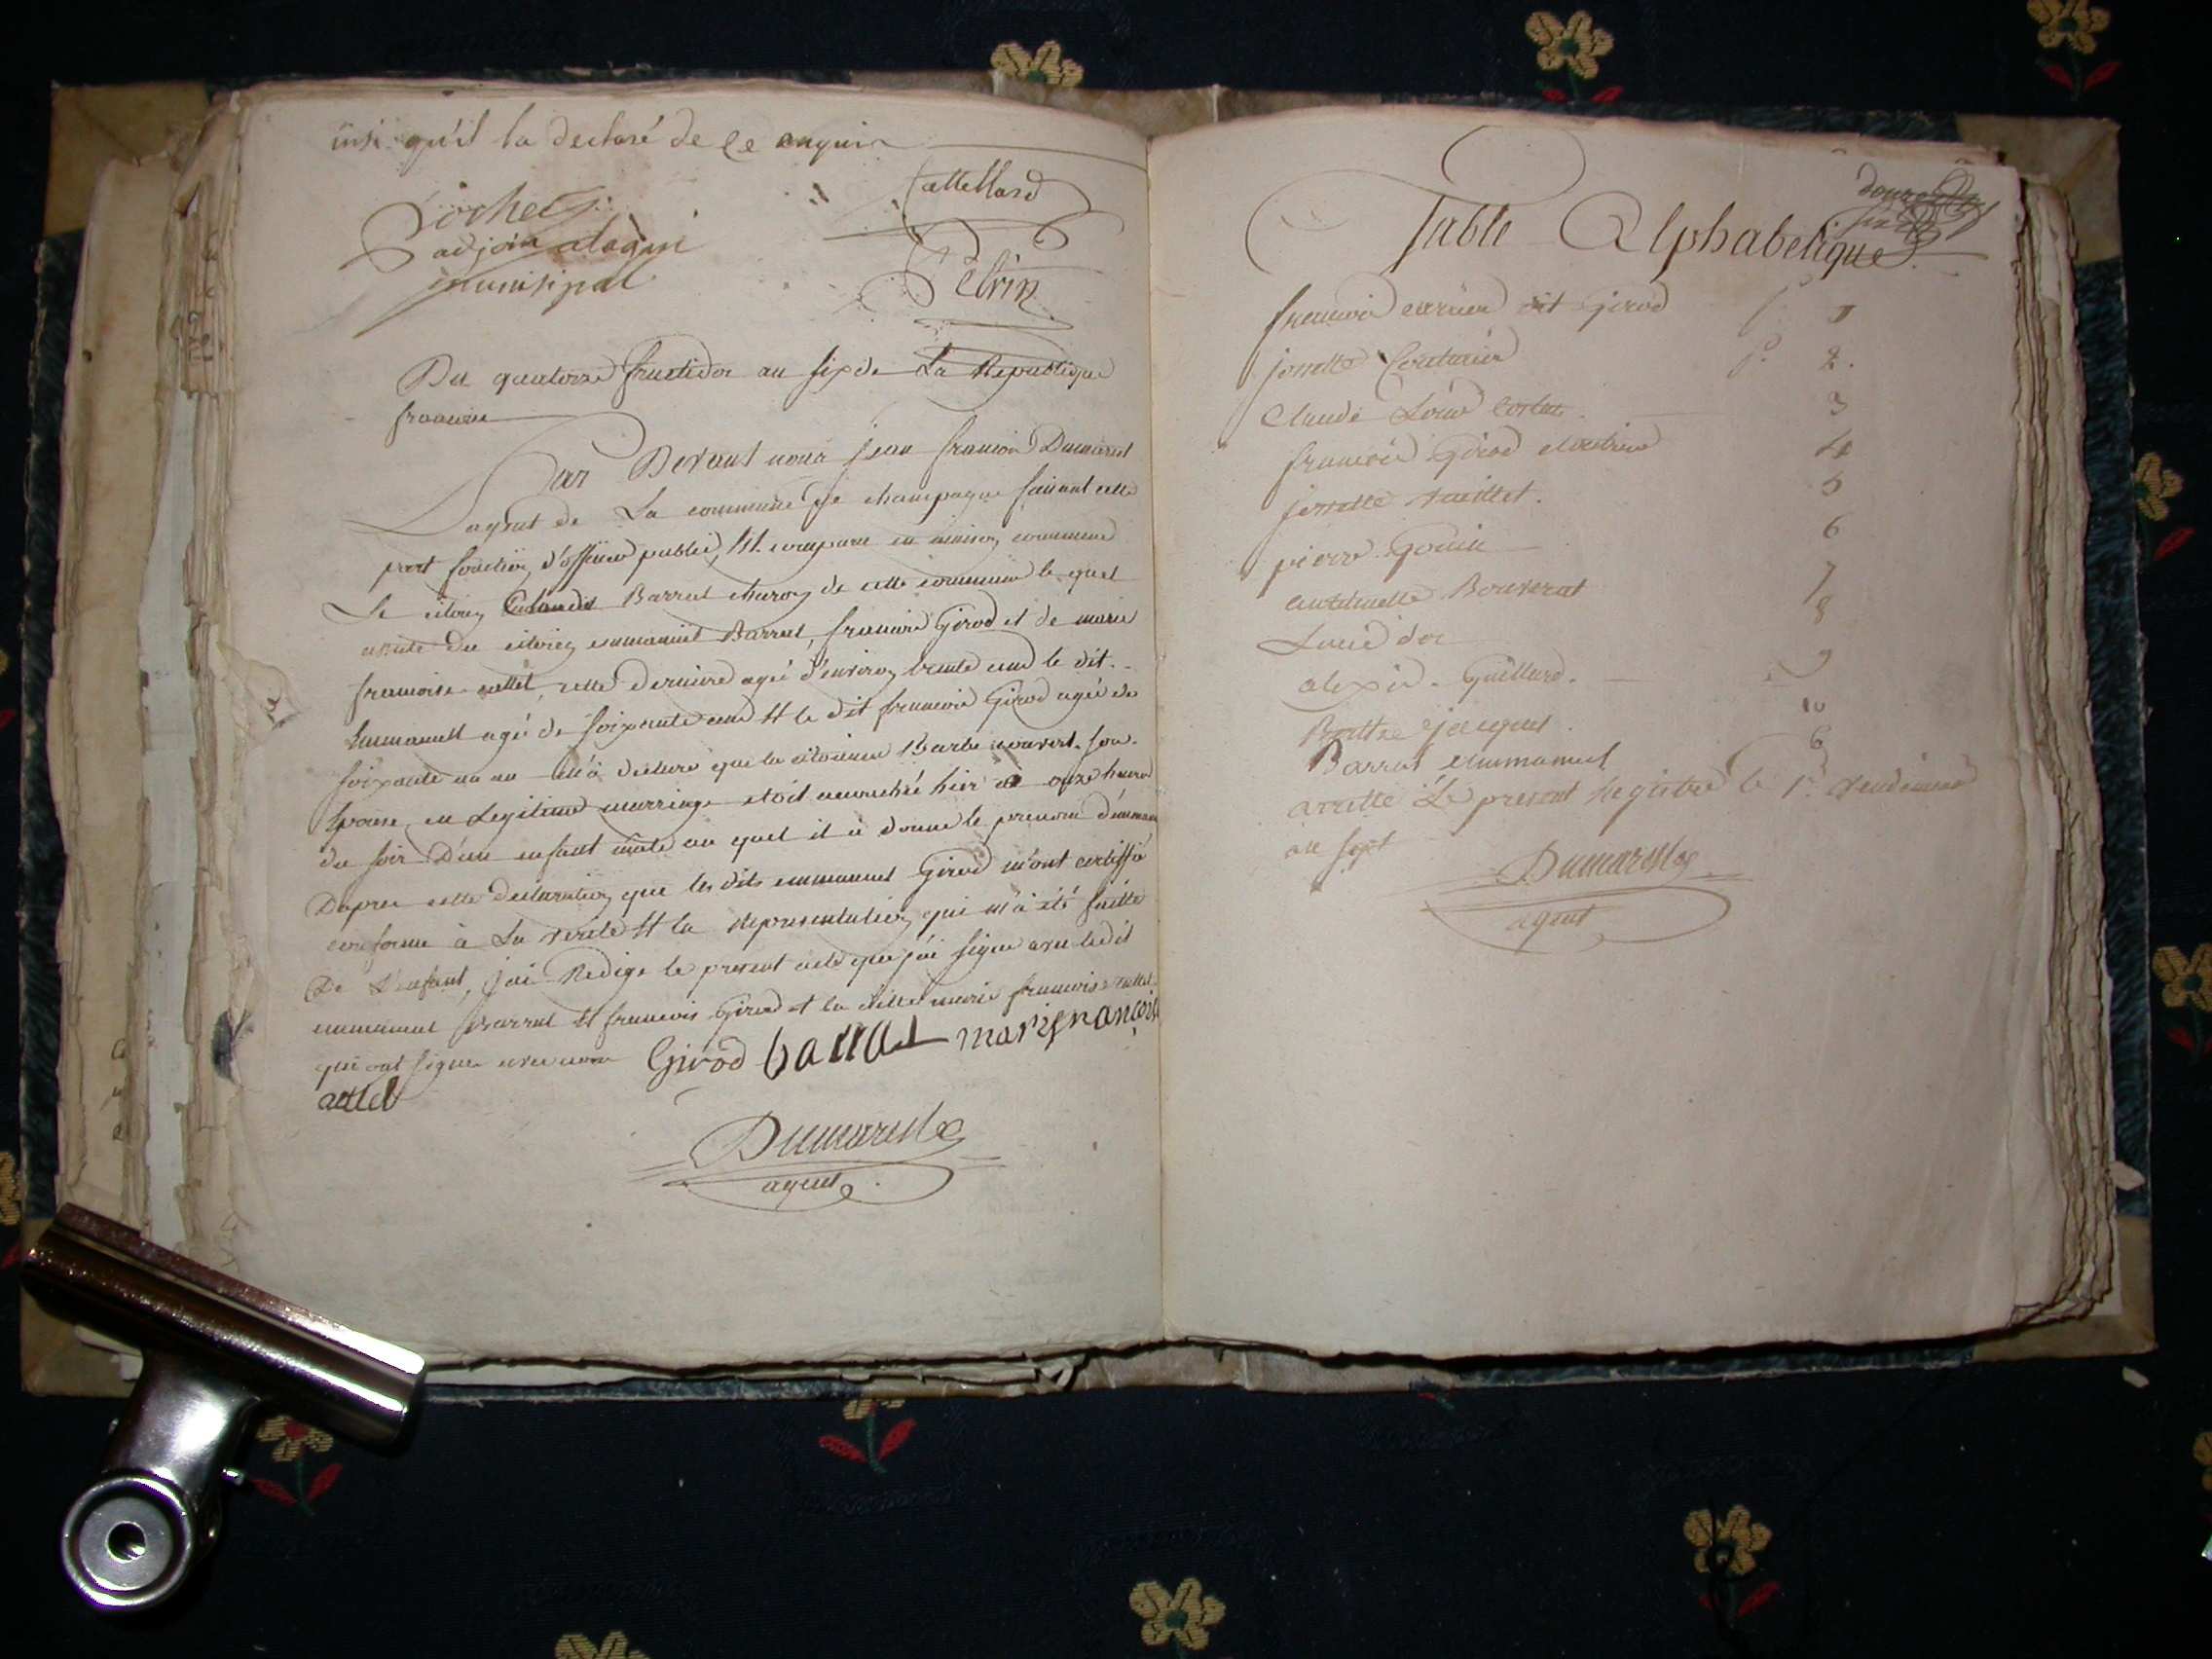 insi qu'il la declaré de ce enquis
Cattelland
Rochet
adjoin alagent
municipal
Pelrin
Du quatorze fructidor an six de La Republique
francoise
Par Devant nous jean francois Dumarest
agent de La commune de champagne faisant cette
part fonction d'officier public, Et comparu en maison commune
Le citoien Barrat charon de cette commune le quel
assité du citoien emmanuel Barrat, francois Girod et de marie
francoise cette derniere agé d'environ trente ans le dit
Emmanuel agé de soixante ans Et le dit francois Girod agée de
soixante un an M'a declare que la citoienne Barbe son
Epouse en Legitime marriage etoit accouchée hier à onze heures
du soir D'un enfant male au quel il a donne le prenom d'emman
Dapres cette declaration que les dits emmanuel Girod m'ont certiffié
conforme à La verité Et la Representation qui m'a été faitte
De L'enfant, j'ai Redige le present acte que j'ai signe avec ledit
emmanuel Barrat Et francois Girod et la ditte marie francoise
qui ont signe avec nous Girod barrat marifrancoise
Dumarest
agent
douze
six
Table Alphabetique
francois carrier dit Girod f. 1
josette f. 2.
Claude Louis 3
francois Girod 4
josette vuillet. 5
pierre Gouin 6
anthelmette Bouverat 7
Louis d'or 8
alexis Guillard. 9
jacques 10
Barrat Emmanuel 6
arretté Le present Registre le 1er vendemiere
an sept
Dumarest
agent